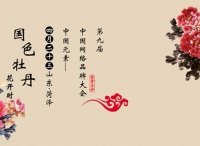 第九届
中国网络品牌大会
中国元素——
四月二十三山东·菏泽
国色牡丹
花开时